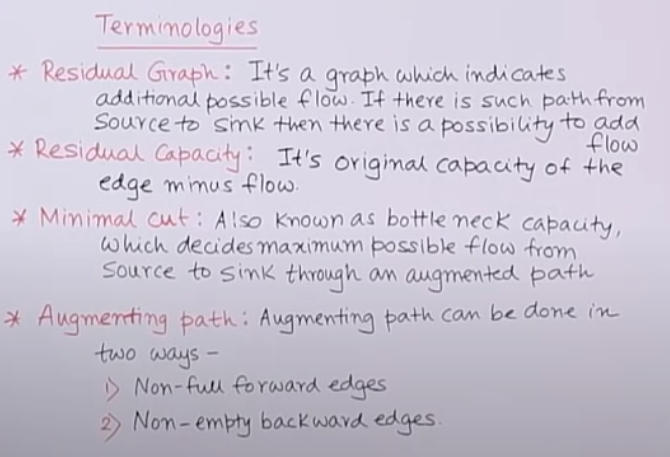 Terminologies
* Residual Graph: It's a graph which indicates
additional possible flow. If there is such path from
Source to sink then there is a possibility to add
flow
* Residual Capacity: It's original capacity of the
edge minus flow.
* Minimal cut: Also known as bottle neck capacity,
which decides maximum possible flow from
Source to sink through an augmented path
* Augmenting path: Augmenting path can be done in
two ways –
1) Non-full forward edges
2) Non-empty backward edges.